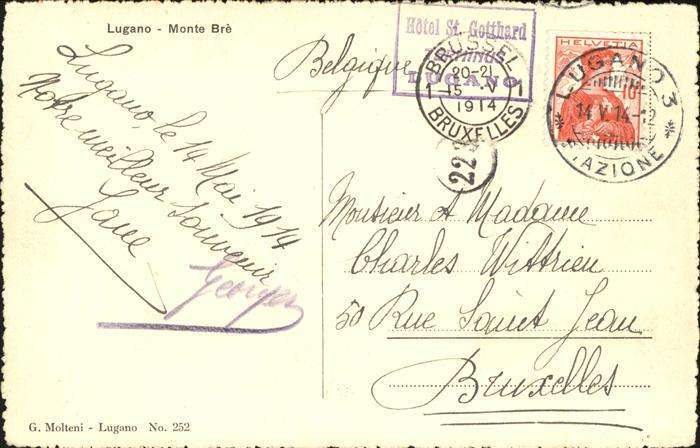 Lugano - Monte Brè
Lugano, le 14 Mai 1914
Notre meilleur souvenir
Jane
Georges
G. Molteni - Lugano No. 252
Hôtel St. Gotthard
Terminus
LUGANO
Belgique
BRUSSEL
20-21
1 15 V 1
1914
BRUXELLES
222
HELVETIA
LUGANO 3
14 V 14-12
STAZIONE
Monsieur et Madame
Charles Wittrien
50 Rue Saint Jean
Bruxelles